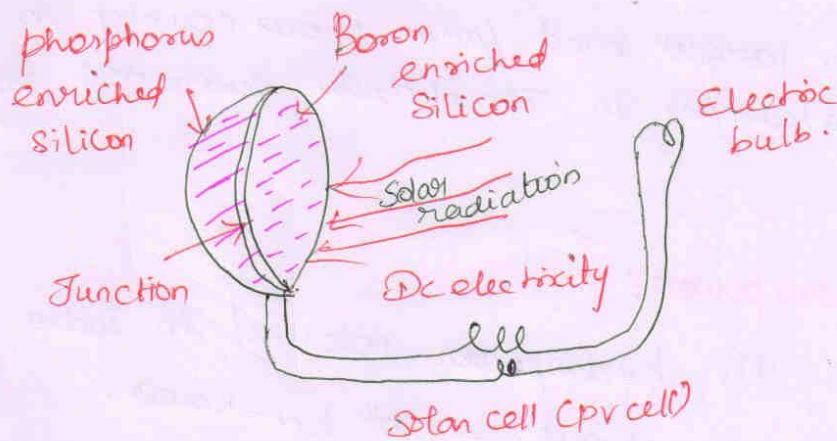 phosphorus
enriched
silicon
Boron
enriched
Silicon
Electric
bulb.
Solar
radiation
Junction
Dc electricity
Solar cell (PV cell)